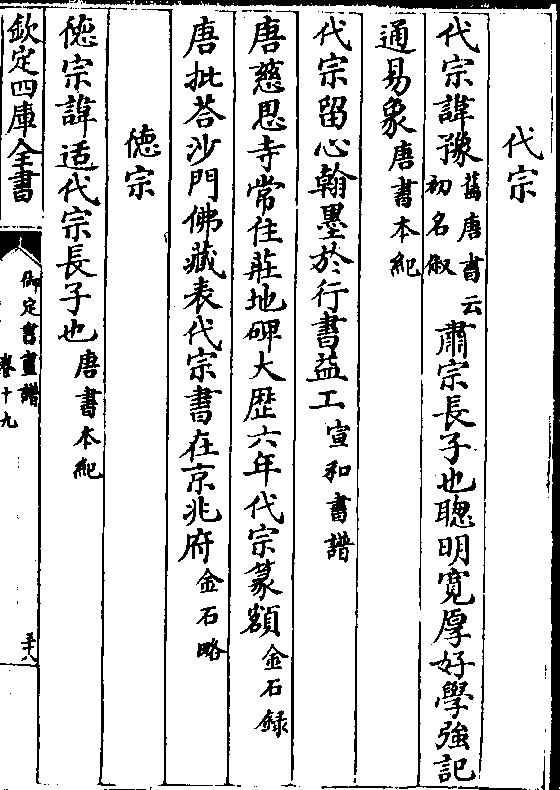 代宗
代宗諱豫舊唐書云初名俶肅宗長子也聰明寛厚好學強記
通易象唐書本紀
代宗留心翰墨於行書益工宣和書譜
唐慈恩寺常住莊地碑大歴六年代宗篆額金石録
唐批答沙門佛藏表代宗書在京兆府金石略
德宗
德宗諱适代宗長子也唐書本紀
欽定四庫全書
御定書畫譜
卷十九